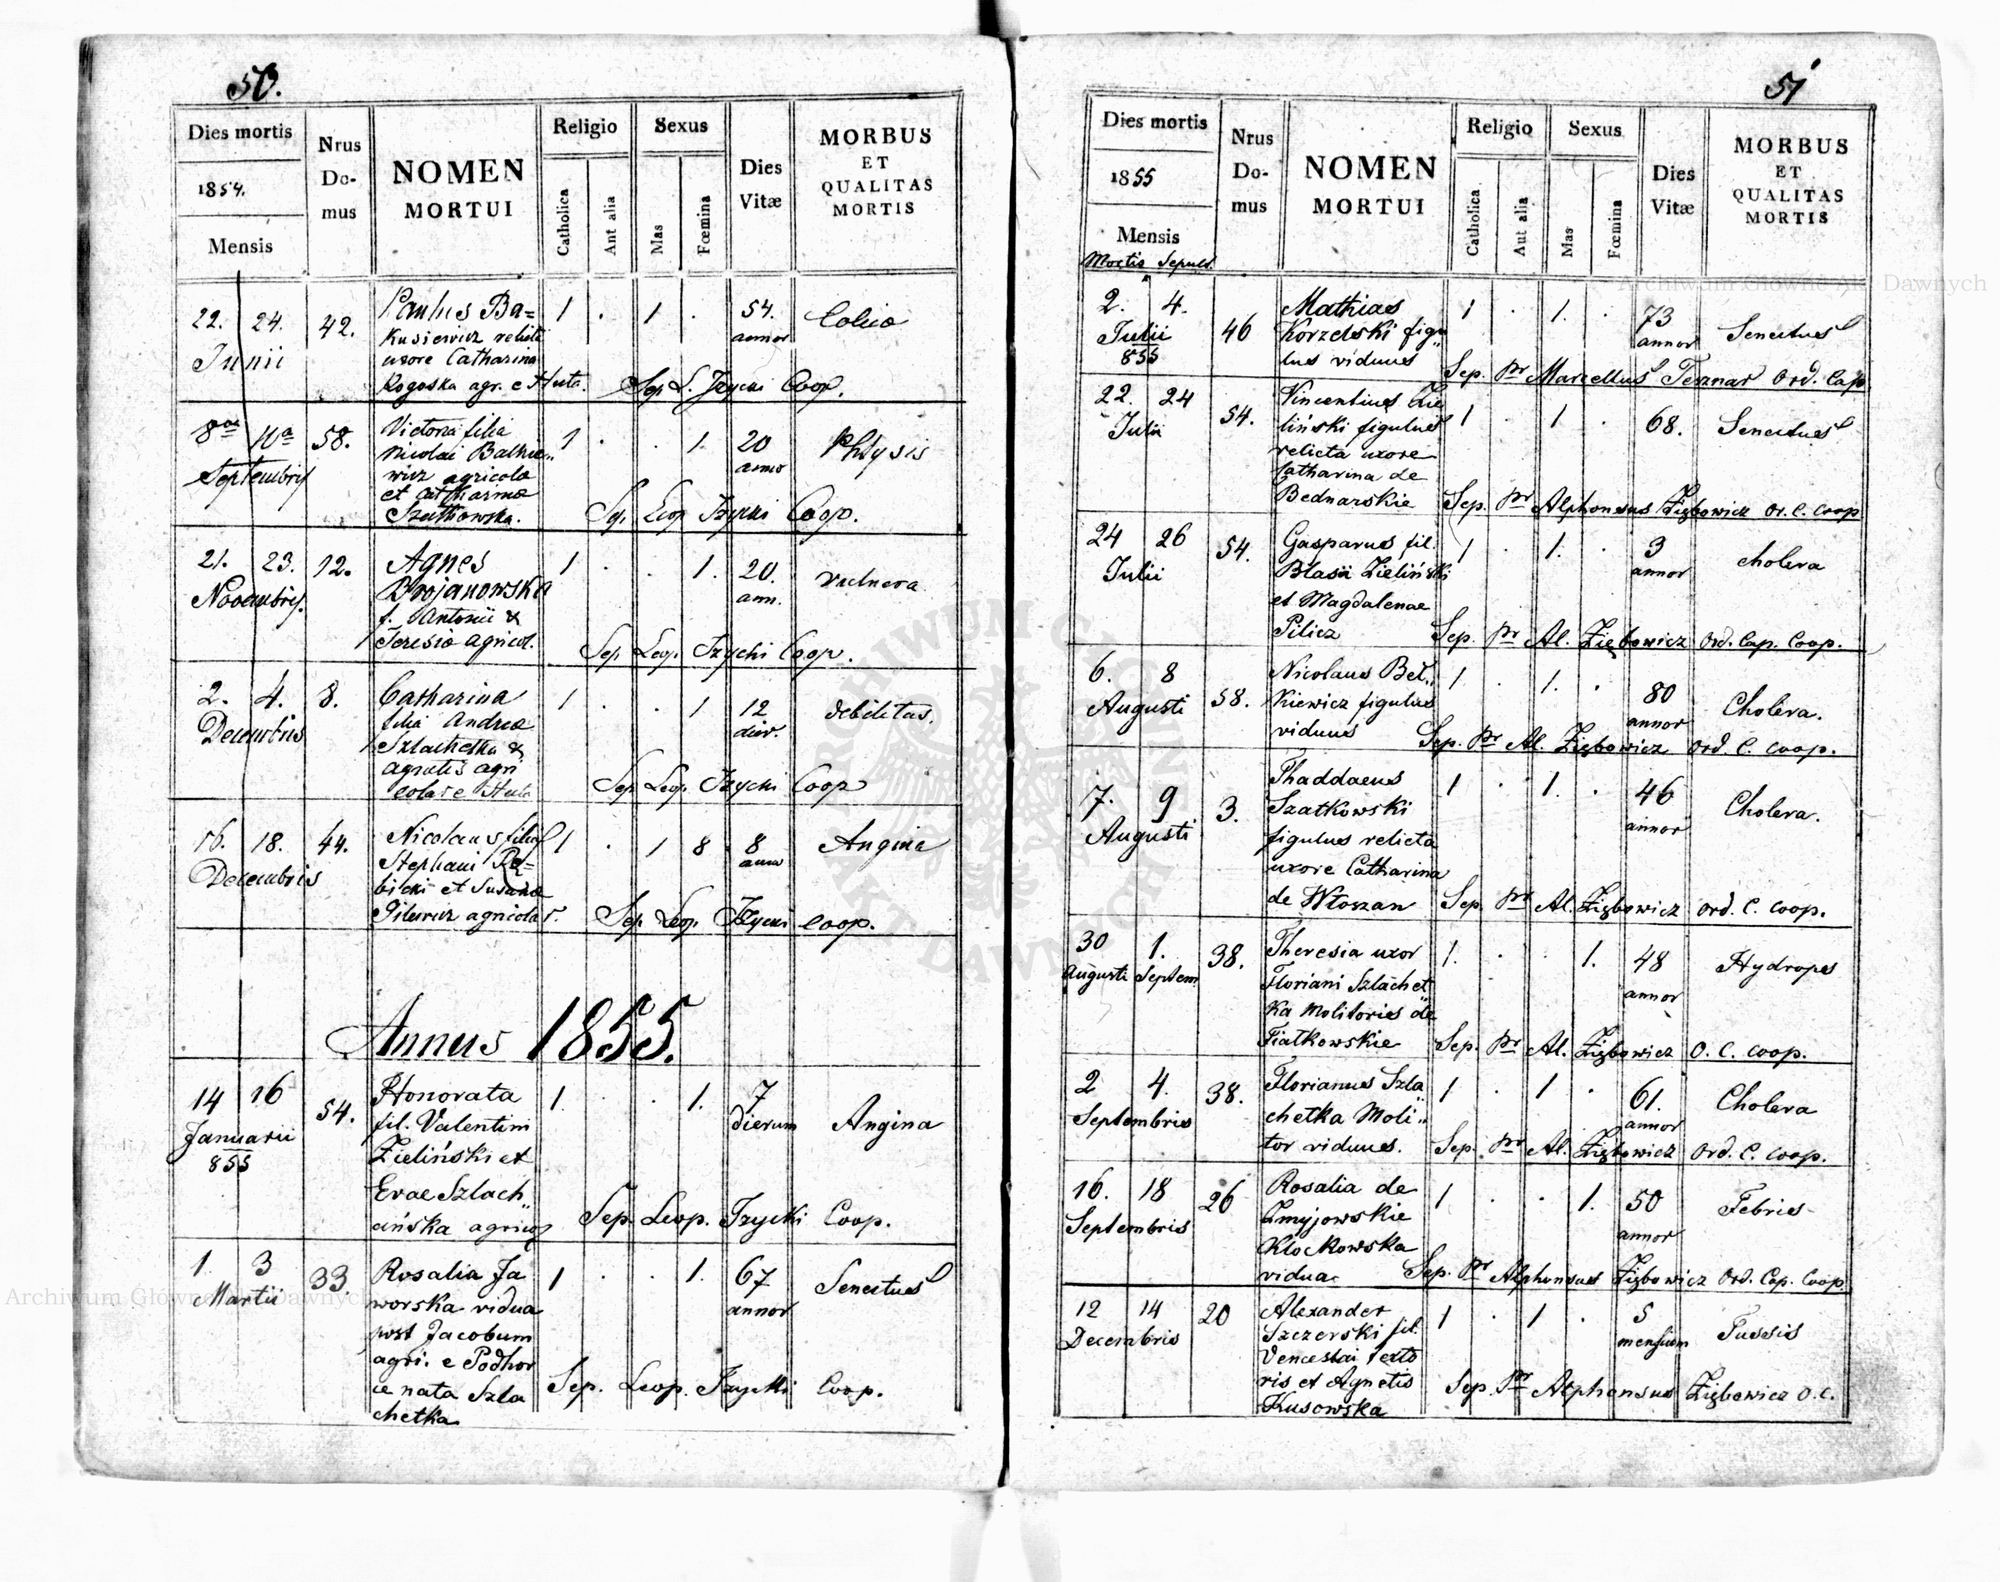 50.
Dies mortis
1854.
Mensis
Nrus Do- mus
NOMEN
MORTUI
Religio
Catholica
Aut alia
Sexus
Mas
Fœmina
Dies Vitæ
MORBUS
ET
QUALITAS
MORTIS
22. 24. 42. Paulus Ba= 1 . 1 . 54. Colica
Junii annor
uxore Catharina
Rogoska agr. e Huta. Sep. L. Jzycki Coop.
8va 10a 58. Victoria filia 1 . . 1. 20 Phtysis
Septembris Nicolai annor
wicz agricolae
et Catharinae
Szatkowska. Sep. Leop Jzycki Coop.
21. 23. 12. Agnes 1 . . 1. 20. vulnera
Novembris. Drojanowska ann.
f. Antonii &
Teresiae agricol. Sep. Leop. Jzycki Coop.
2. 4. 8. Catharina 1 . . 1 12 debilitas.
Decembris filia Andreae dier.
Szlachetka &
Agnetis agri
colar e Huta Sep Leop. Jzycki Coop
16. 18. 44. Nicolaus filius 1 . 1 8 8 Angina
Decembris Stephani
bicki et Susannae
agricolar. Sep. Leop. Jzycki Coop.
Annus 1855.
14 16 54. Honorata 1. . . 1. 7 Angina
Januarii fil. Valentini dierum
855 Zieliński et
Evae Szlach„
cińska agricol Sep. Leop. Jzycki Coop.
1 3 33. Rosalia Ja 1 . . 1. 67 Senectus
Martii worska vidua annor
post Jacobum
agri. e Podhor
ce nata Szla Sep. Leop. Jzycki Coop.
chetka
51
Dies mortis
1855
Mensis
Mortis Sepult.
Nrus Do- mus
NOMEN
MORTUI
Religio
Catholica
Aut alia
Sexus
Mas
Fœmina
Dies Vitæ
MORBUS
ET
QUALITAS
MORTIS
2. 4. 46 Mathias 1 . 1. . 73 Senectus
Julii Korzelski figu„ annor
855 lus viduus Sep. Pr Marcellus Tesznar Ord. Cap
22. 24 54. Vincentius Zie 1 . 1 . 68. Senectus
Julii liński figulus
relicta uxore
Catharina de
Bednarskie Sep. Pr Alphonsus Ziębowicz Or. C. Coop
24 26 54. Gasparus fil. 1 . 1. . 3 cholera
Julii Blasii Zieliński annor
et Magdalenae
Pilicz Sep. Pr Al. Ziębowicz Ord. Cap. Coop.
6. 8 58. Nicolaus Bet„ 1 . 1. . 80 Cholera.
Augusti kiewicz figulus annor
viduus Sep. Pr Al. Ziębowicz Ord. C. Coop.
7. 9 3. Thaddaeus 1 . 1. . 46 Cholera.
Augusti Szatkowski annor
figulus relicta
uxore Catharina
de Włoszan Sep. Pr Al. Ziębowicz Ord. C. Coop.
30 1. 38. Theresia uxor 1. . . 1. 48 Hydrops
Augusti Septem Floriani Szlachet„ annor
ka Molitoris de
Fiatkowskie Sep. Pr Al. Ziębowicz O. C. Coop.
2 4. 38. Florianus Szla„ 1 . 1 . 61. Cholera
Septembris chetka Moli„ annor
tor viduus. Sep. Pr Al. Ziębowicz Ord. C. Coop.
16. 18 26 Rosalia de 1 . . 1. 50 Febris
Septembris Zmyjowskie annor
Klockowska
vidua Sep. Pr Alphonsus Ziębowicz Ord. Cap. Coop.
12 14 20 Alexander 1 . 1 . 5 Tussis
Decembris Szczerski fil. mensium
Venceslai texto
ris et Agnetis Sep. Pr Alphonsus Ziębowicz O. C.
Kusowska
Archiwum Główne Akt Dawnych
Archiwum Główne Akt Dawnych
ARCHIWUM GŁÓWNE AKT DAWNYCH